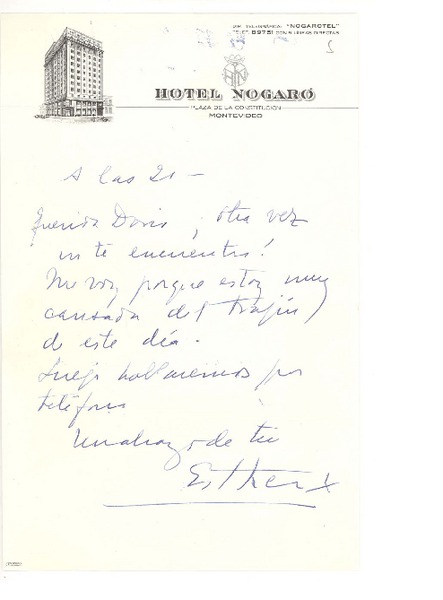 DIR. TELEGRÁFICA: "NOGAROTEL"
TELEF. 89751 CON 5 LINEAS DIRECTAS
5
HOTEL NOGARÓ
PLAZA DE LA CONSTITUCIÓN
MONTEVIDEO
A las 21 —
Querida Doris ¡otra vez
no te encuentro!
Me voy porque estoy muy
cansada del trajín
de este día.
Luego hablaremos por
teléfono
Un abrazo de tu
Esther